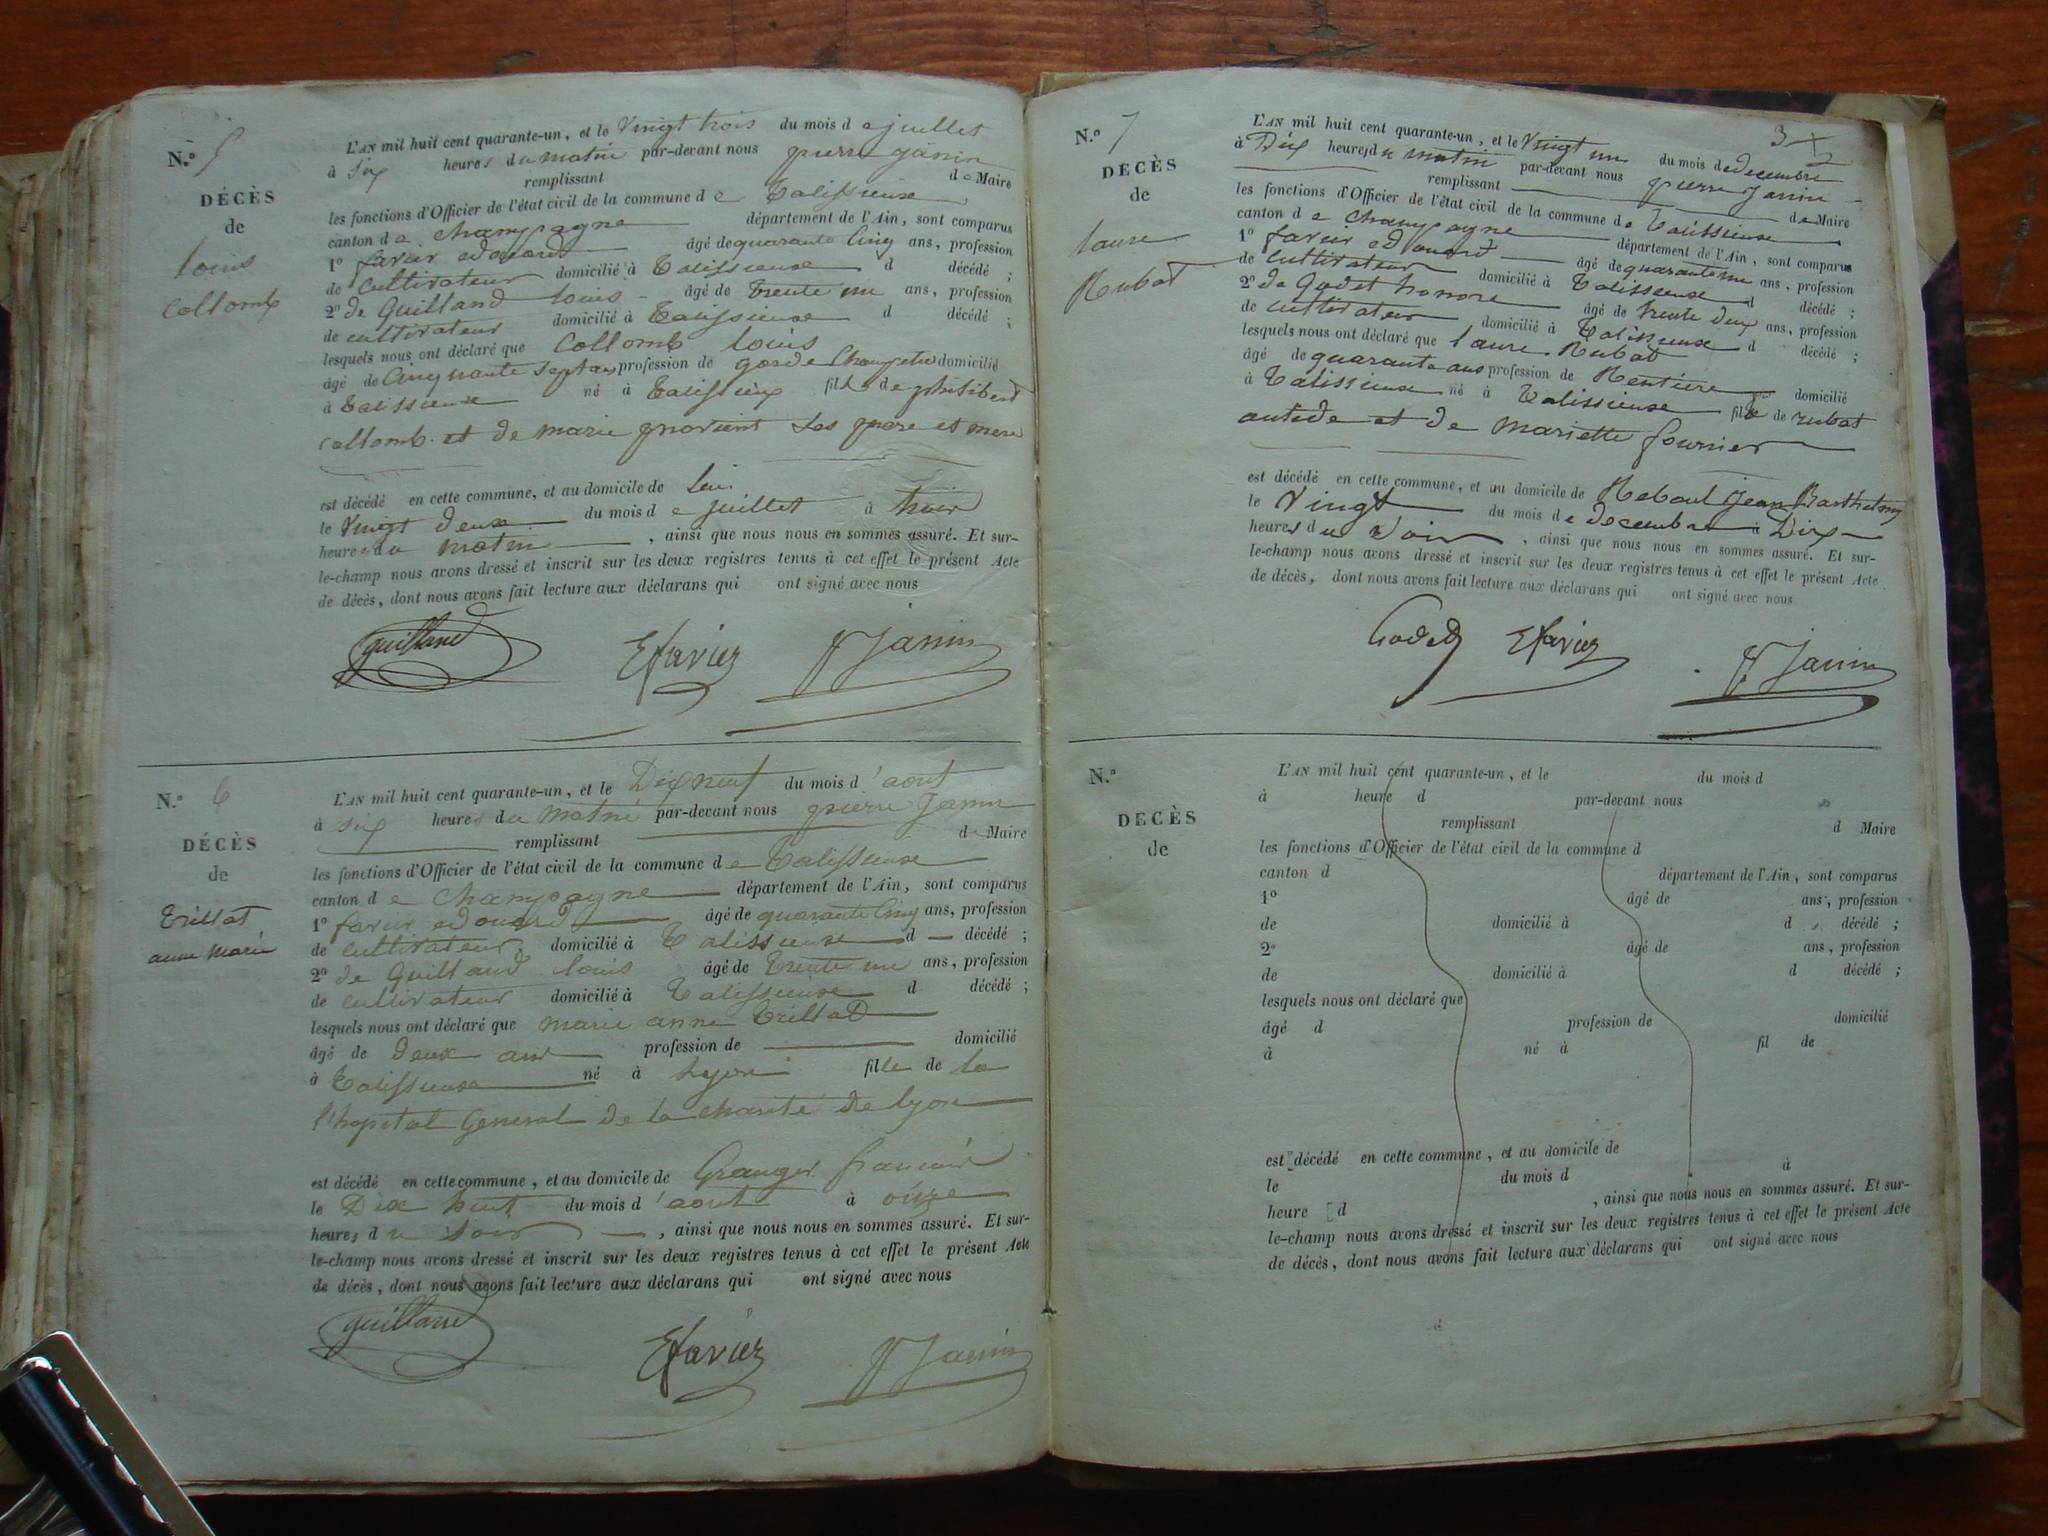 N.º 5
DÉCÈS
de
louis
Collomb
L'AN mil huit cent quarante-un, et le Vingt trois du mois d e juillet
à six heures du matin par-devant nous pierre janin
remplissant d e Maire
les fonctions d'Officier de l'état civil de la commune d e Talissieuse
canton d e Champagne département de l'Ain, sont comparus
1º favier edouard âgé de quarante Cinq ans, profession
de Cultivateur domicilié à Talissieuse d décédé ;
2º de Guilland louis âgé de trente un ans, profession
de cultivateur domicilié à Talissieuse d décédé ;
lesquels nous ont déclaré que Collomb louis
âgé de Cinquante sept ans profession de garde Champetre domicilié
à Talissieuse né à Talissieux fils de philibert
collomb et de marie les pere et mere
est décédé en cette commune, et au domicile de lui
le Vingt deux du mois d e juillet à trois
heures du matin , ainsi que nous nous en sommes assuré. Et sur-
le-champ nous avons dressé et inscrit sur les deux registres tenus à cet effet le présent Acte
de décès, dont nous avons fait lecture aux déclarans qui ont signé avec nous
guilland Efavier P Janin
N.º 6
DÉCÈS
de
Trillat
anne marie
L'AN mil huit cent quarante-un, et le Dix neuf du mois d'aout
à six heures du matin par-devant nous pierre Janin
remplissant d e Maire
les fonctions d'Officier de l'état civil de la commune d e Talissieuse
canton d e Champagne département de l'Ain, sont comparus
1º favier edouard âgé de quarante Cinq ans, profession
de cultivateur domicilié à Talissieuse d décédé ;
2º de Guilland louis âgé de trente un ans, profession
de cultivateur domicilié à Talissieuse d décédé ;
lesquels nous ont déclaré que marie anne Trillat
âgé de deux ans profession de domicilié
à Talissieuse né à Lyon fille de la
l'hopital General de la charité de lyon
est décédé en cette commune, et au domicile de Granger francois
le Dix huit du mois d'aout à onze
heures du soir , ainsi que nous nous en sommes assuré. Et sur-
le-champ nous avons dressé et inscrit sur les deux registres tenus à cet effet le présent Acte
de décès, dont nous avons fait lecture aux déclarans qui ont signé avec nous
guilland Efavier P Janin
3
N.º 7
DÉCÈS
de
laure
Rubat
L'AN mil huit cent quarante-un, et le Vingt un du mois de decembre
à Dix heures du matin par-devant nous pierre Janin
remplissant d e Maire
les fonctions d'Officier de l'état civil de la commune de Talissieuse
canton d e Champagne département de l'Ain, sont comparus
1º favier edouard âgé de quarante un ans, profession
de cultivateur domicilié à Talissieuse d décédé ;
2º de Godet honore âgé de trente deux ans, profession
de cultivateur domicilié à Talissieuse d décédé ;
lesquels nous ont déclaré que laure Rubat
âgé de quarante ans profession de Rentiere domicilié
à Talissieuse né à Talissieuse fille de rubat
antide et de Mariette fournier
est décédé en cette commune, et au domicile de Reboul Jean Barthelemy
le Vingt du mois d e decembre à Dix
heures du soir , ainsi que nous nous en sommes assuré. Et sur-
le-champ nous avons dressé et inscrit sur les deux registres tenus à cet effet le présent Acte
de décès, dont nous avons fait lecture aux déclarans qui ont signé avec nous
Godet Efavier P Janin
N.º
DÉCÈS
de
L'AN mil huit cent quarante-un, et le du mois d
à heure d par-devant nous
remplissant d Maire
les fonctions d'Officier de l'état civil de la commune d
canton d département de l'Ain, sont comparus
1º âgé de ans, profession
de domicilié à d décédé ;
2º âgé de ans, profession
de domicilié à d décédé ;
lesquels nous ont déclaré que
âgé d profession de domicilié
à né à fil de
est décédé en cette commune, et au domicile de
le du mois d à
heure d , ainsi que nous nous en sommes assuré. Et sur-
le-champ nous avons dressé et inscrit sur les deux registres tenus à cet effet le présent Acte
de décès, dont nous avons fait lecture aux déclarans qui ont signé avec nous